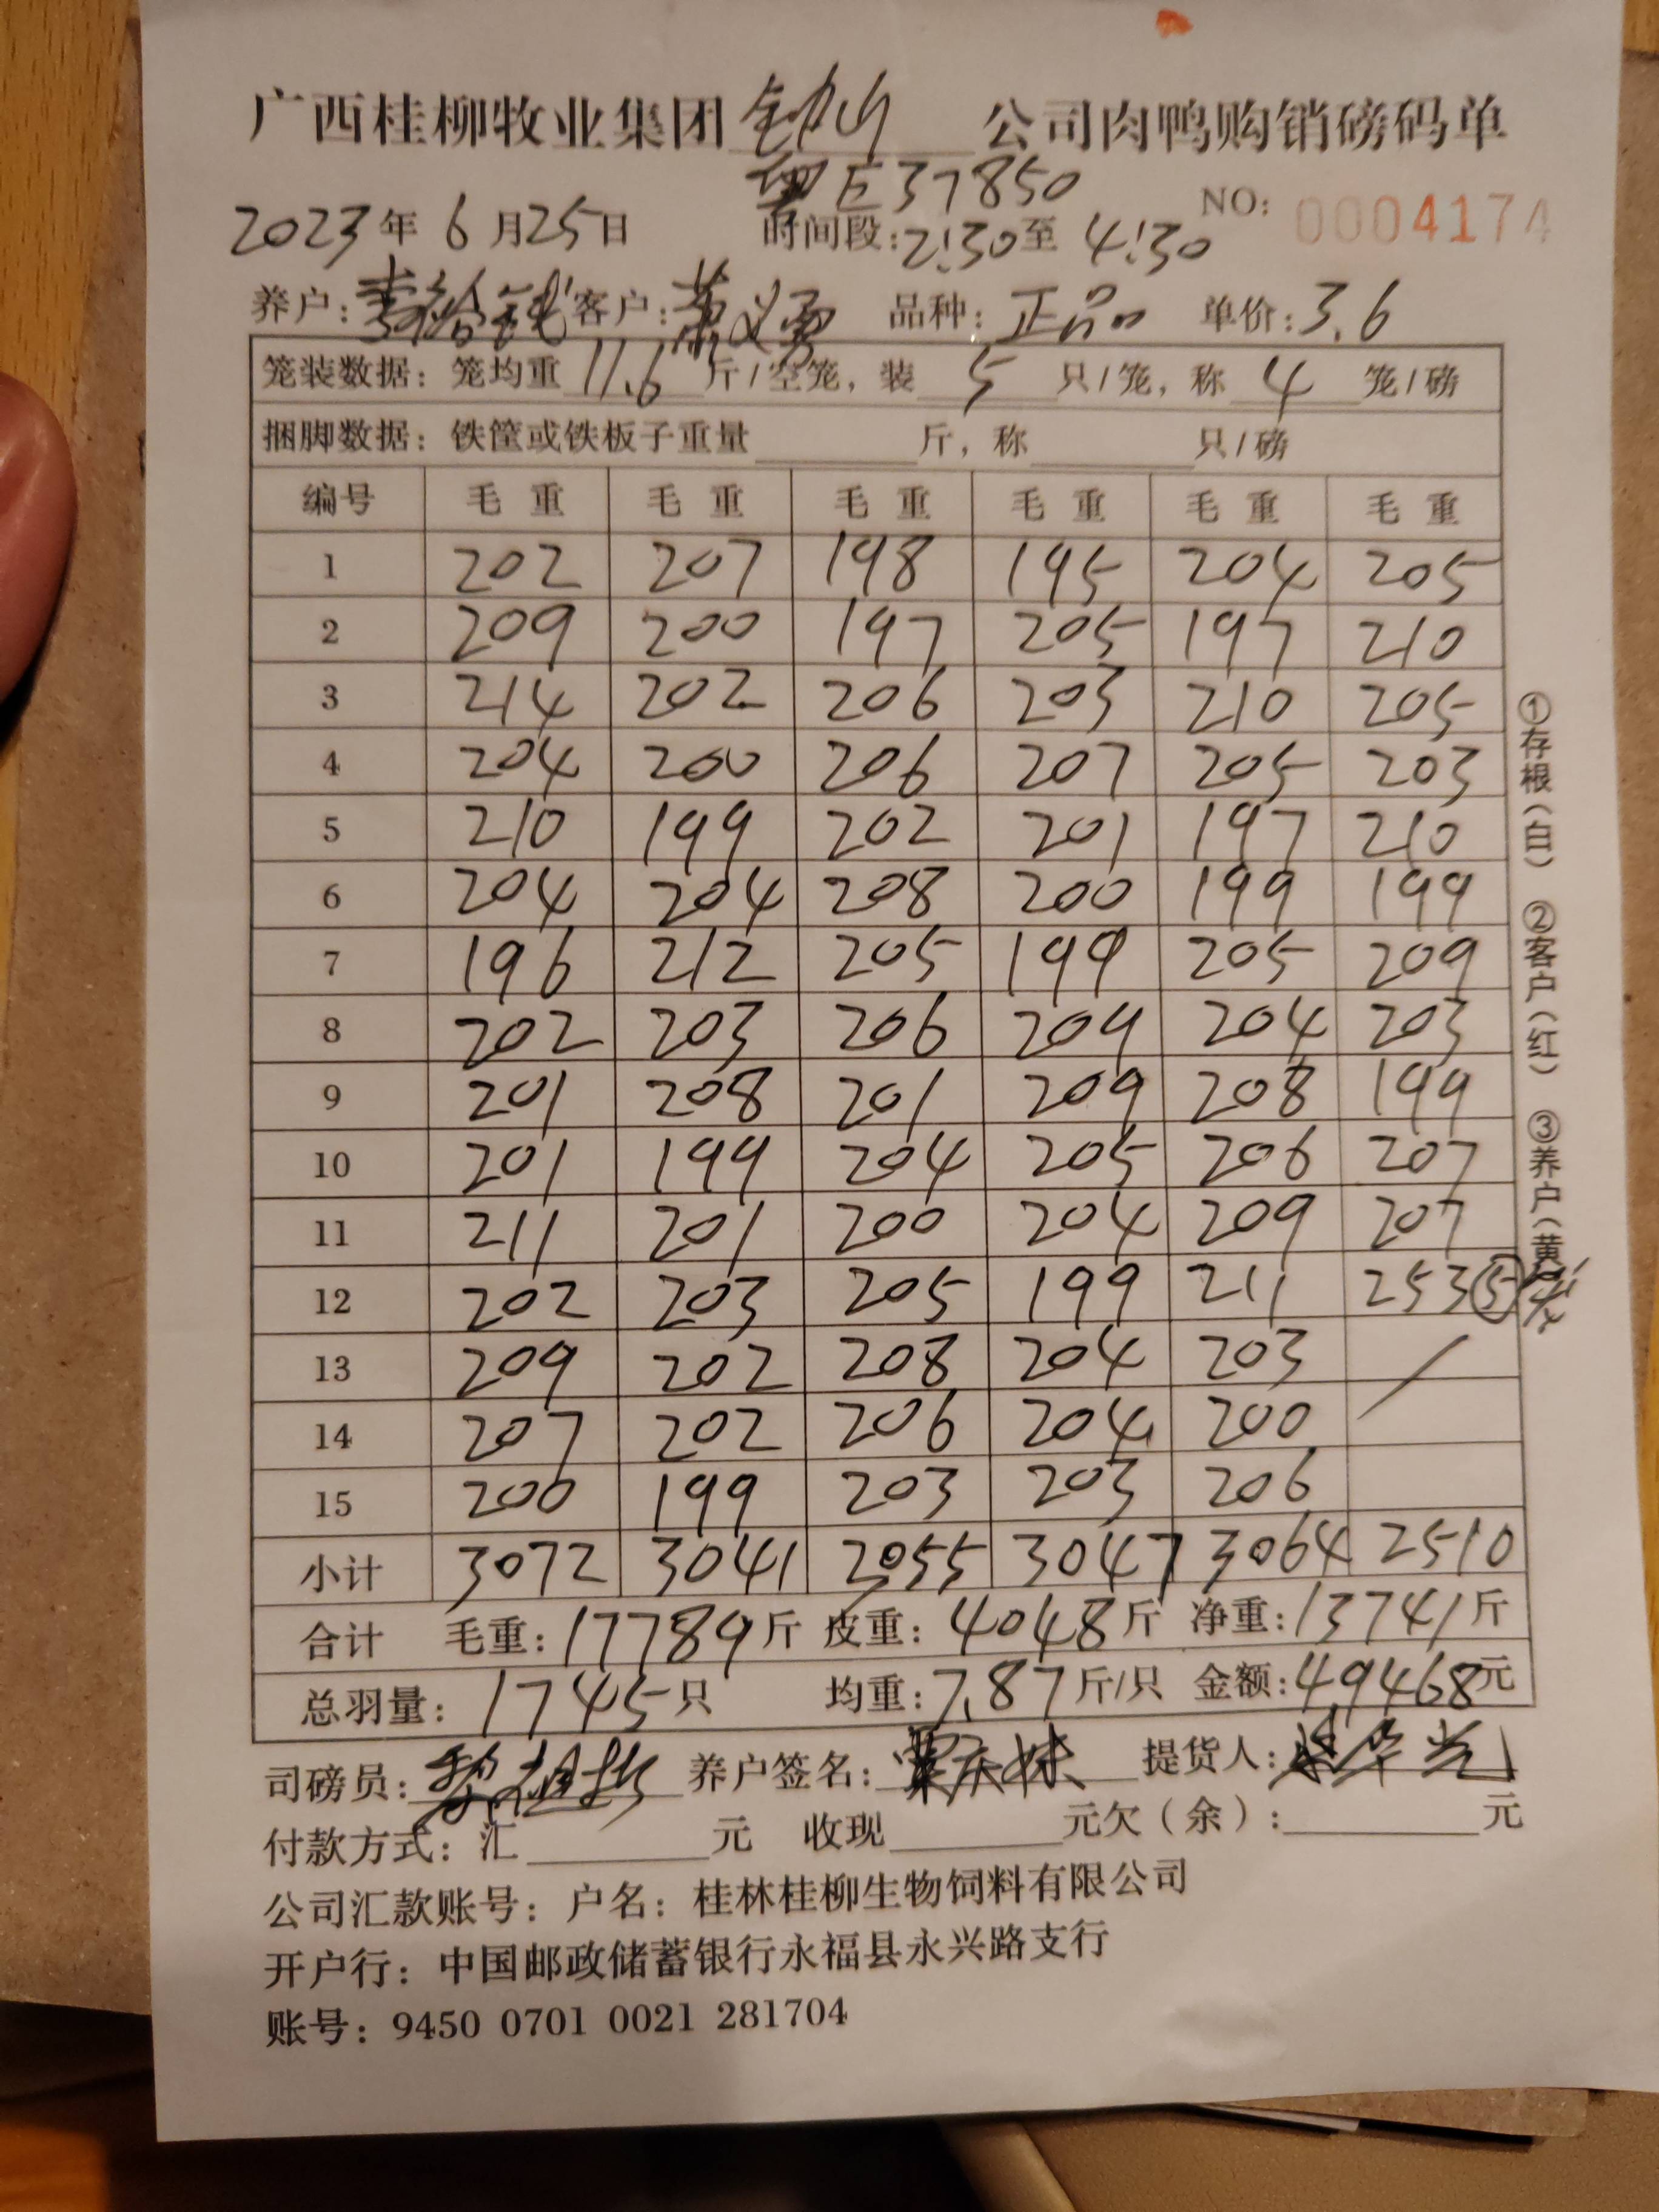 广西桂柳牧业集团 钟山 公司肉鸭购销磅码单
粤E37850
2023年 6月25日 时间段:2:30至 4:30 NO: 0004174
养户: 客户:萧义勇 品种:正品 单价:3.6
笼装数据: 笼均重 11.6 斤/空笼, 装 5 只/笼, 称 4 笼/磅
捆脚数据: 铁筐或铁板子重量 斤, 称 只/磅
编号 毛重 毛重 毛重 毛重 毛重 毛重
1 202 207 198 195 204 205
2 209 200 197 205 197 210
3 214 202 206 203 210 205
4 204 200 206 207 205 203
5 210 199 202 201 197 210
6 204 204 208 200 199 199
7 196 212 205 199 205 209
8 202 203 206 209 204 203
9 201 208 201 209 208 199
10 201 199 204 205 206 207
11 211 201 200 204 209 207
12 202 203 205 199 211 253 ⑤
13 209 202 208 204 203
14 207 202 206 204 200
15 200 199 203 203 206
小计 3072 3041 3055 3047 3064 2510
合计 毛重:17789斤 皮重:4048斤 净重:13741斤
总羽量: 1745只 均重:7.87斤/只 金额:49468元
司磅员: 养户签名:覃庆妹 提货人:
付款方式: 汇 元 收现 元欠(余): 元
公司汇款账号: 户名: 桂林桂柳生物饲料有限公司
开户行: 中国邮政储蓄银行永福县永兴路支行
账号: 9450 0701 0021 281704
①存根(白) ②客户(红) ③养户(黄)